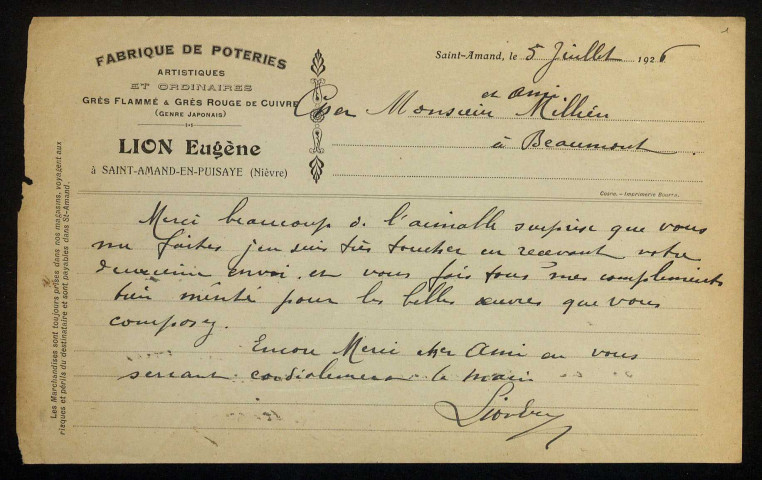 FABRIQUE DE POTERIES
ARTISTIQUES
ET ORDINAIRES
GRÈS FLAMMÉ & GRÈS ROUGE DE CUIVRE
(GENRE JAPONAIS)
LION Eugène
à SAINT-AMAND-EN-PUISAYE (Nièvre)
Les Marchandises sont toujours prises dans nos magasins, voyagent aux
risques et périls du destinataire et sont payables dans St-Amand.
Saint-Amand, le 5 Juillet 1926
1
et ami
Cher Monsieur Millien
à Beaumont
Cosne. - Imprimerie Bourra.
Merci beaucoup de l'aimable surprise que vous
me faites j'en suis très toucher en recevant votre
envoi, et vous fais tous mes compliments
bien mérité pour les belles œuvres que vous
composez.
Encore Merci cher Ami en vous
serrant cordialement la main
Lion Eug